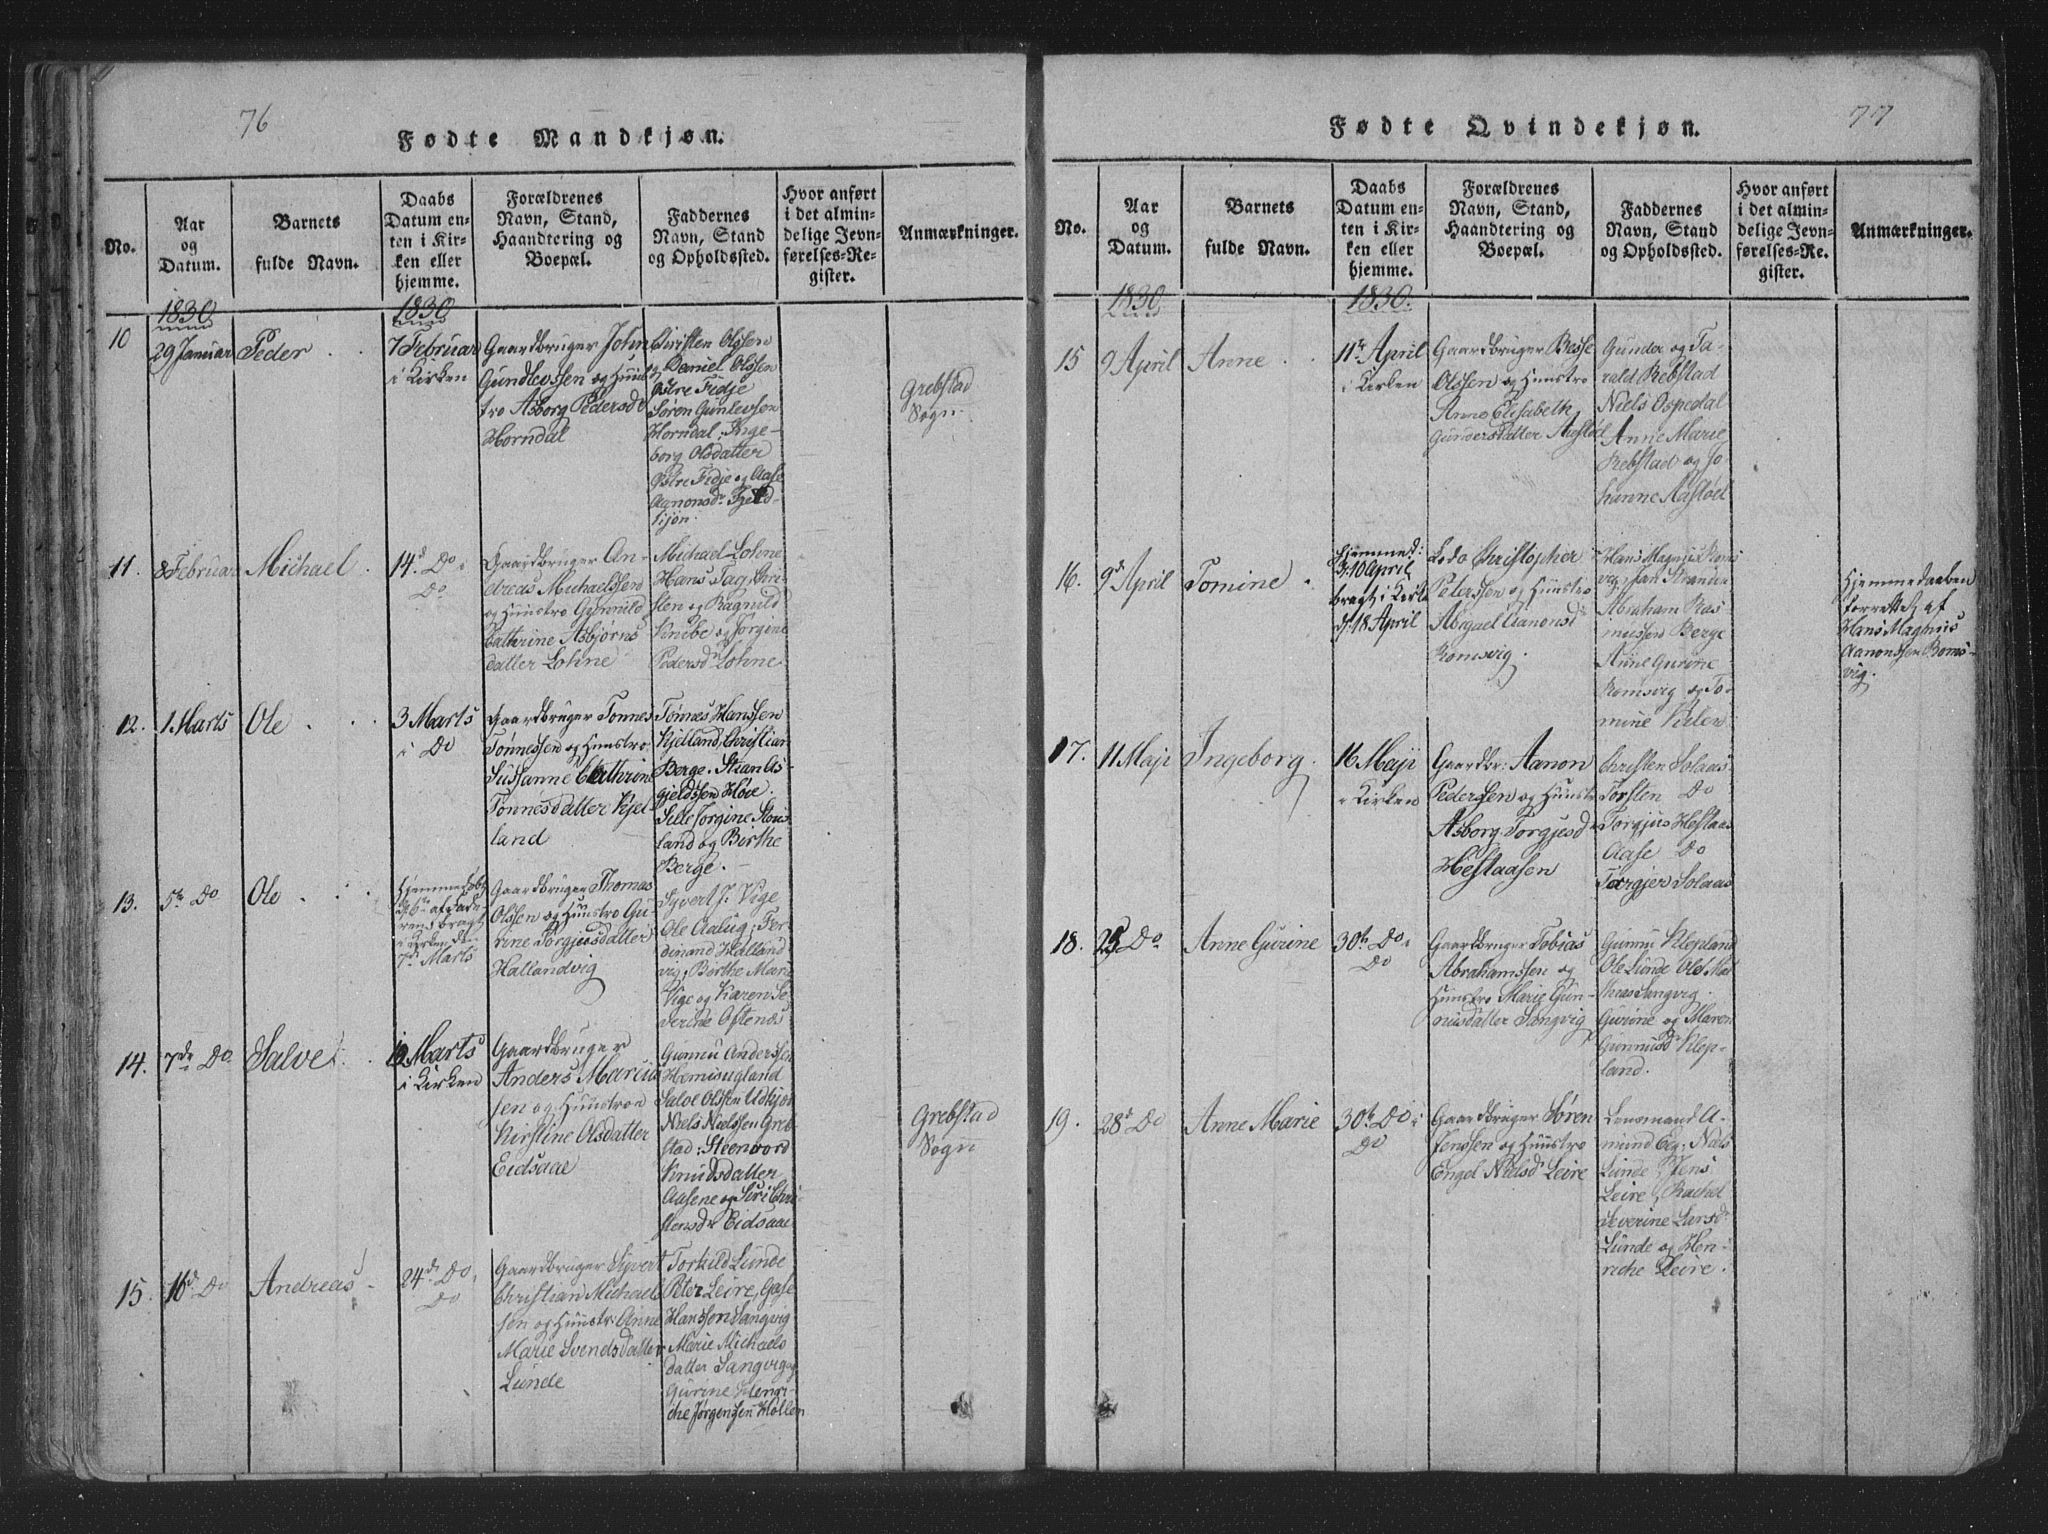 76
Fødte Mandkjøn.
No.
Aar
og
Datum.
Barnets
fulde Navn.
Daabs
Datum en-
ten i Kir-
ken eller
hjemme.
Forældrenes
Navn, Stand,
Haandtering og
Boepæl.
Faddernes
Navn, Stand
og Opholdssted.
Hvor anført
i det almin-
delige Jevn-
førelses-Re-
gister.
Anmærkninger.
1830
1830
10
29 Januar
Peder
7 Februar
i Kirken
Gaardbruger John
Gundlevssen og Huus-
tro Asborg Pedersdr
Horndal
Christen Olssen
og Daniel Olssen
Østre Fidje
Søren Gunlevsen
Horndal, Inge-
borg Olsdatter
Østre Fidje og Aase
Aanonsdr
Grebstad
Sogn
11.
8 Februar
Michael
14d Do i
Do
Gaardbruger An-
dreas Michaelssen
og Huustro Gunnild
Cathrine Asbjørns
datter Lohne
Michael Lohne
Hans
og Ragnild
Knibe og Jørgine
Pedersdr Lohne
12.
1 Marts
Ole
3 Marts
i Do
Gaardbruger Tønnes
Tønnessen og Huustro
Sussanne Cathrine
Tønnesdatter Kjel
land
Tønnes Hanssen
Kjelland, Christian
Berge. Stian As-
gjeldssen Høie.
Sille Jørgine Stous
land og Birthe
Berge.
13.
5te Do
Ole
Hjemmedøbt
bragt
i Kirken den
7de Marts
Gaardbruger Thomas
Olssen og Huustro Gu-
rine Torgjusdatter
Hallandvig
Syvert J. Vige
Ole Aalug, Fer-
dinand Halland
vig, Birthe Marie
Vige og Karen Se-
verine Oftenes
14.
7de Do
Salve
12 Marts
i Kirken
Gaardbruger
Anders Marius
sen og Huustroe
Kirstine Olsdatter
Eidsaae
Gunnu Anderssen
Hemisugland
Salve Olssen Udkjør
Niels Nielssen Greb-
stad: Steenvord
Knudsdatter
Aasene og Siri Chri-
stensdr Eidsaae
Grebstad
Sogn
15.
16d Do
Andreas
24d Do i
Do
Gaardbruger Syvert
Christian Michael
sen og Huustr: Anne
Marie Svendsdatter
Lunde
Torkild Lunde
Peter Leire,
Hanssen Sangvig
Marie Michaels
datter Sangvig og
Gurine Henri-
che Jørgenssen Høllen
77
Fødte Qvindekjøn.
No.
Aar
og
Datum.
Barnets
fulde Navn.
Daabs
Datum en-
ten i Kir-
ken eller
hjemme.
Forældrenes
Navn, Stand,
Haandtering og
Boepæl.
Faddernes
Navn, Stand
og Opholdssted.
Hvor anført
i det almin-
delige Jevn-
førelses-Re-
gister.
Anmærkninger.
1830
1830.
15
9 April
Anne
11te April
i Kirken
Gaardbruger Besse
Olssen og Huustro
Anne Elisabeth
Gundersdatter Aastøl
Gunder og Ta-
rald Rebstad
Niels Ospedal
Anne Marie
Rebstad og Jo-
hanne Aastøel
16.
9de April
Tomine
Hjemmed:
d: 10 April
bragt i Kirk
d: 18 April
Lods Christopher
Peterssen og Huustro
Abigael Aanonsdr
Romsvig.
Hans Magnus Roms
vig, Jan Stranden
Abraham Ras
mussen Berge
Anne Gurine
Romsvig og To-
mine
Hjemmedaaben
forrettet af
Hans Magnus
Aanonssen Roms-
vig.
17.
11 Maji
Ingeborg.
16 Maji
i Kirken
Gaardbr: Aanon
Pederssen og Huustro
Asborg Torgjusdr
Hestaasen
Christen Solaas
Torsten Do
Torgjus Hestaas
Aase Do
Torgjer Solaas
18.
25 Do
Anne Gurine
30te Do i
Do
Gaardbruger Tobias
Abrahamssen og
Huustro Marie Gun-
nusdatter Sangvig
Gunnu Klepland
Ole Lunde Ole Mat
thias Sangvig.
Gurine og Maren
Gunnusdr Klep-
land.
19.
28d Do
Anne Marie
30te Do i
Do
Gaardbruger Søren
Jenssen og Huustro
Engel Nielsdr Leire
Lensmand A-
mund Eeg: Niels
Lunde, Jens
Leire, Rachel
Severine Larsdr
Lunde og Hen-
riche Leire.